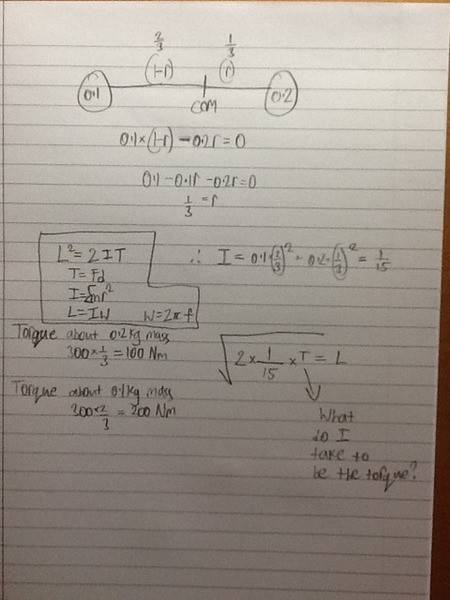 2/3 1/3
(1-r) (r)
0.1 COM 0.2
0.1×(1-r) - 0.2r = 0
0.1 - 0.1r - 0.2r = 0
1/3 = r
L² = 2IT
T = Fd
I = Σmr²
L = Iω ω = 2πf
∴ I = 0.1·(2/3)² + 0.2·(1/3)² = 1/15
Torque about 0.2kg mass
300 × 1/3 = 100 Nm
√2 × 1/15 × T = L
Torque about 0.1kg mass
300 × 2/3 = 200 Nm
What
do I
take to
be the torque?